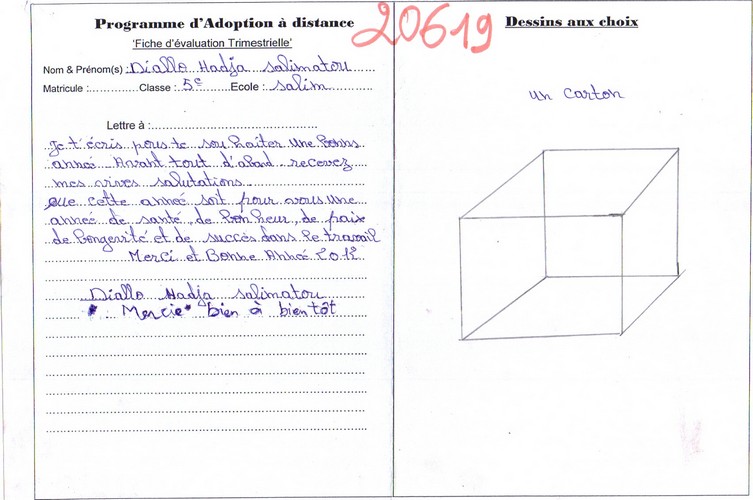 Programme d'Adoption à distance
'Fiche d'évaluation Trimestrielle'
Nom & Prénom(s) : Diallo Hadja salimatou
Matricule : Classe : 5e Ecole : salim
Lettre à :
Je t'écris pous te souhaiter une bonns
anneé Avant tout d'abord recevez
mes vives salutations
que cette anneé soit pour vous une
anneé de santé, de bonheur, de paix
de longevité et de succès dans le travail
Merci et Bonne Anneé 2012
Diallo Hadja salimatou
Mercie bien à bientôt
20619
Dessins aux choix
un carton